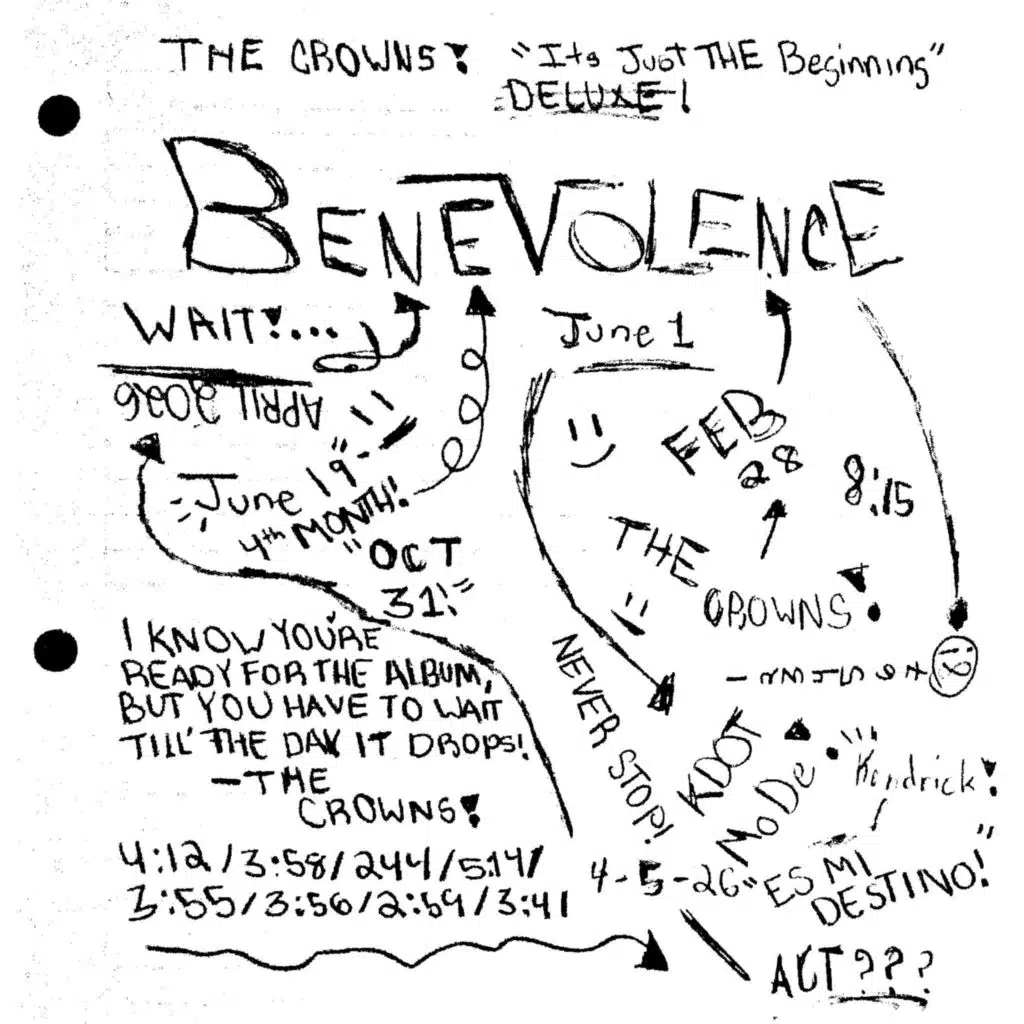 THE CROWNS! "Its Just THE Beginning"
DELUXE!
BENEVOLENCE
WAIT!...
June 1
APRIL 2026
FEB
28
8:15
June 19"
4th MONTH!
"OCT
31!"
THE
CROWNS!
I KNOW YOU'RE
READY FOR THE ALBUM,
BUT YOU HAVE TO WAIT
TILL' THE DAY IT DROPS!
-THE
CROWNS!
NEVER STOP!
KDOT
MODE
Kendrick!
4:12/3:58/244/5:14/
3:55/3:56/2:59/3:41
4-5-26
"ES MI
DESTINO!"
ACT???